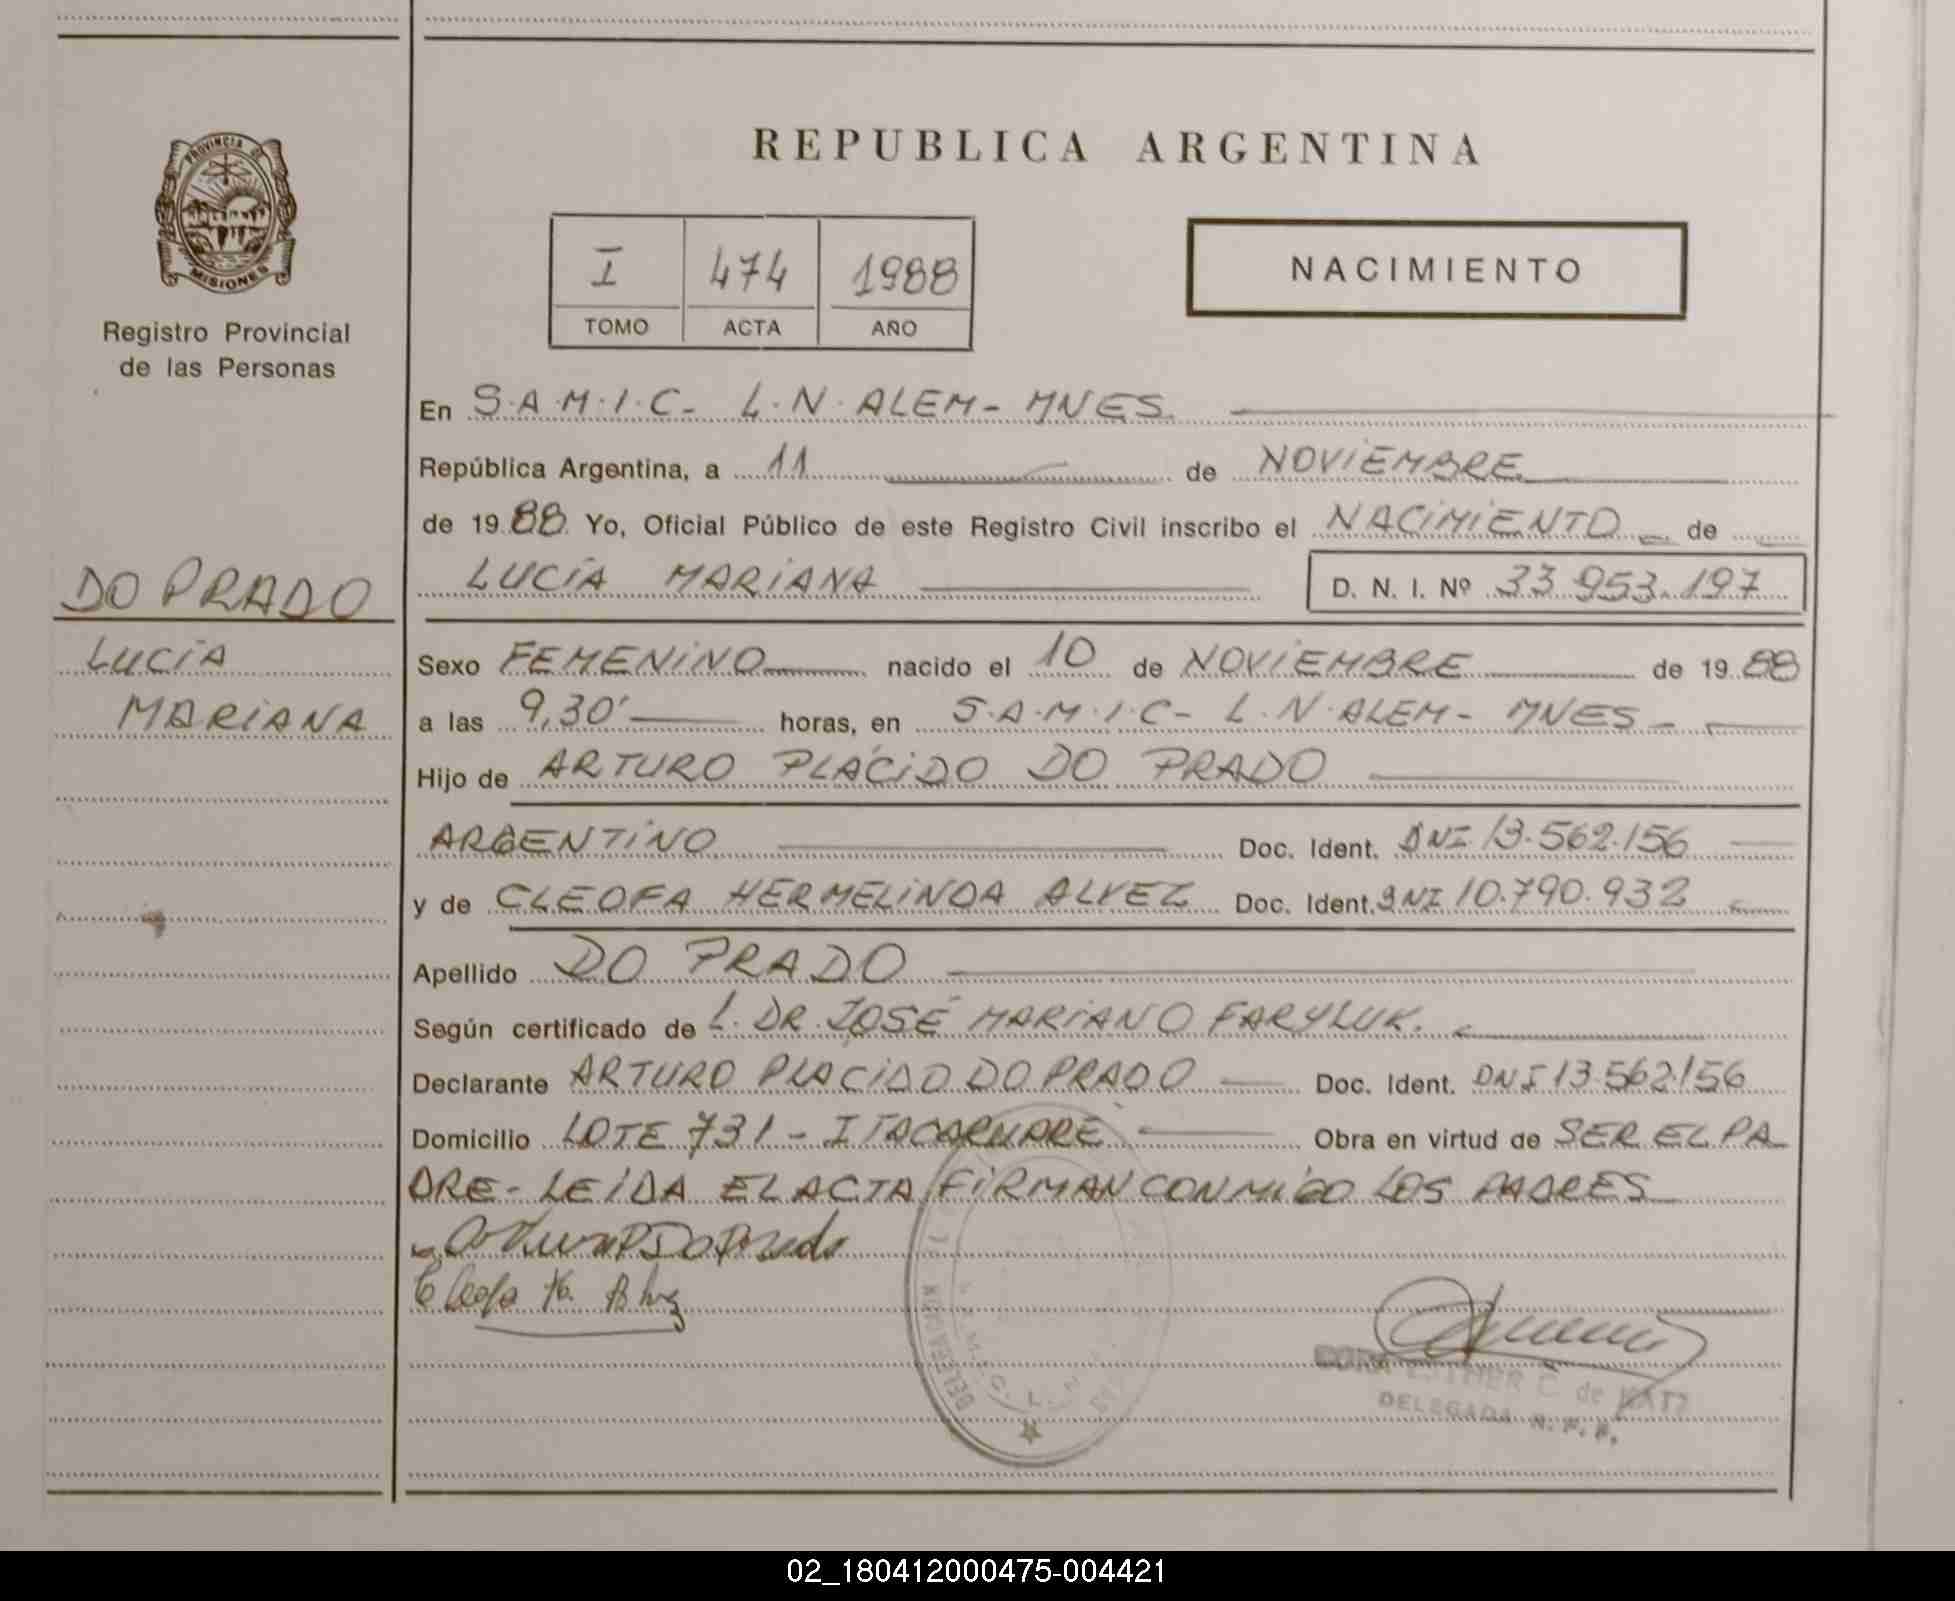 REPUBLICA ARGENTINA
PROVINCIA DE
MISIONES
Registro Provincial
de las Personas
I 474 1988
TOMO ACTA AÑO
NACIMIENTO
En S.A.M.I.C- L.N. ALEM- MNES.
República Argentina, a 11 de NOVIEMBRE
de 1988 Yo, Oficial Público de este Registro Civil inscribo el NACIMIENTO de
LUCÍA MARIANA D. N. I. Nº 33.953.197
DO PRADO
LUCÍA
MARIANA
Sexo FEMENINO nacido el 10 de NOVIEMBRE de 1988
a las 9,30' horas, en S.A.M.I.C- L.N. ALEM- MNES-
Hijo de ARTURO PLÁCIDO DO PRADO
ARGENTINO Doc. Ident. DNI 13.562.156
y de CLEOFA HERMELINDA ALVEZ Doc. Ident. DNI 10.790.932
Apellido DO PRADO
Según certificado de L. DR. JOSÉ MARIANO FARYLUK.
Declarante ARTURO PLACIDO DO PRADO Doc. Ident. DNI 13.562.156
Domicilio LOTE 731 - ITACARUARE Obra en virtud de SER EL PA
DRE- LEIDA EL ACTA FIRMAN CONMIGO LOS PADRES
Arturo P Do Prado
Cleofa H. Alvez
DELEGACION
S.A.M.I.C. L.N.
ESTHER C. de KATZ
DELEGADA R. P. P.
02_180412000475-004421